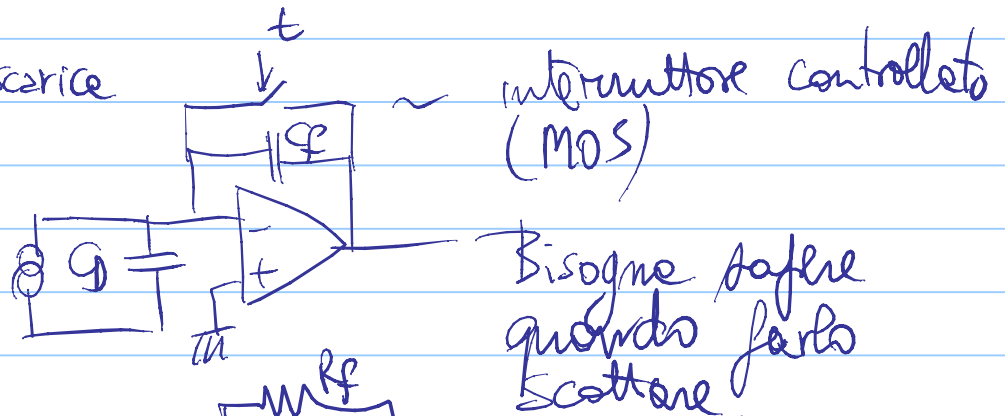 t
scarice
interruttore controllato
Cf
(MOS)
-
CD
+
Bisogna sapere
quando farlo
scattare
Rf